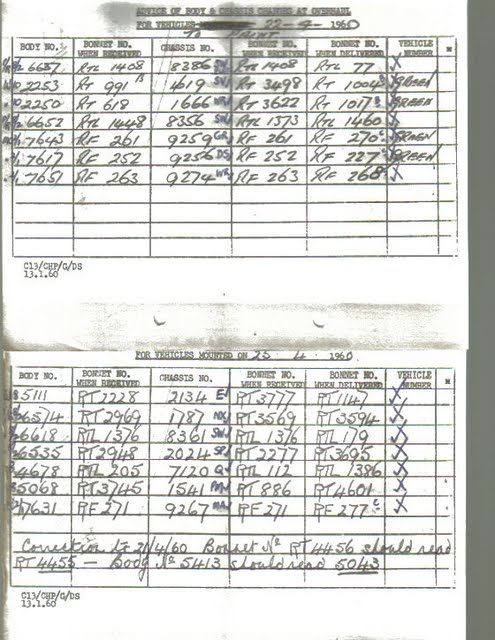 ADVICE OF BODY & CHASSIS CHANGES AT OVERHAUL
FOR VEHICLES 22-9- 1960
TO PAINT
BODY NO. BONNET NO. WHEN RECEIVED CHASSIS NO. BONNET NO. WHEN RECEIVED BONNET NO. WHEN DELIVERED VEHICLE NUMBER
6637 RTL 1408 8386 SW RTL 1408 RTL 77 X
2253 RT 991 B 4619 RT 3498 RT 1004 GREEN
2250 RT 618 1666 RT 3622 RT 1017 B GREEN
6652 RTL 1448 8356 SW RTL 1373 RTL 1460 X
7643 RF 261 9259 GR RF 261 RF 270 C GREEN
7617 RF 252 9256 DS RF 252 RF 227 C GREEN
7651 RF 263 9274 WR RF 263 RF 268 X
C13/CHP/G/DS
13.1.60
FOR VEHICLES MOUNTED ON 25 4 1960
BODY NO. BONNET NO. WHEN RECEIVED CHASSIS NO. BONNET NO. WHEN RECEIVED BONNET NO. WHEN DELIVERED VEHICLE NUMBER
5111 RT 2228 2134 RT 3777 RT 1147 X
6574 RT 2969 1787 NX RT 3569 RT 3594 X
6618 RTL 1376 8361 SW RTL 1376 RTL 179 X
6535 RT 2948 2024 SP RT 2277 RT 3695 X
4678 RTL 205 7120 Q RTL 112 RTL 1386 X
5068 RT 3745 1541 RT 886 RT 4601 X
7631 RF 271 9267 RF 271 RF 277 C X
Correction Lt 21/4/60 Bonnet No RT 4456 should read
RT 4455 — Body No 5413 should read 5043
C13/CHP/G/DS
13.1.60